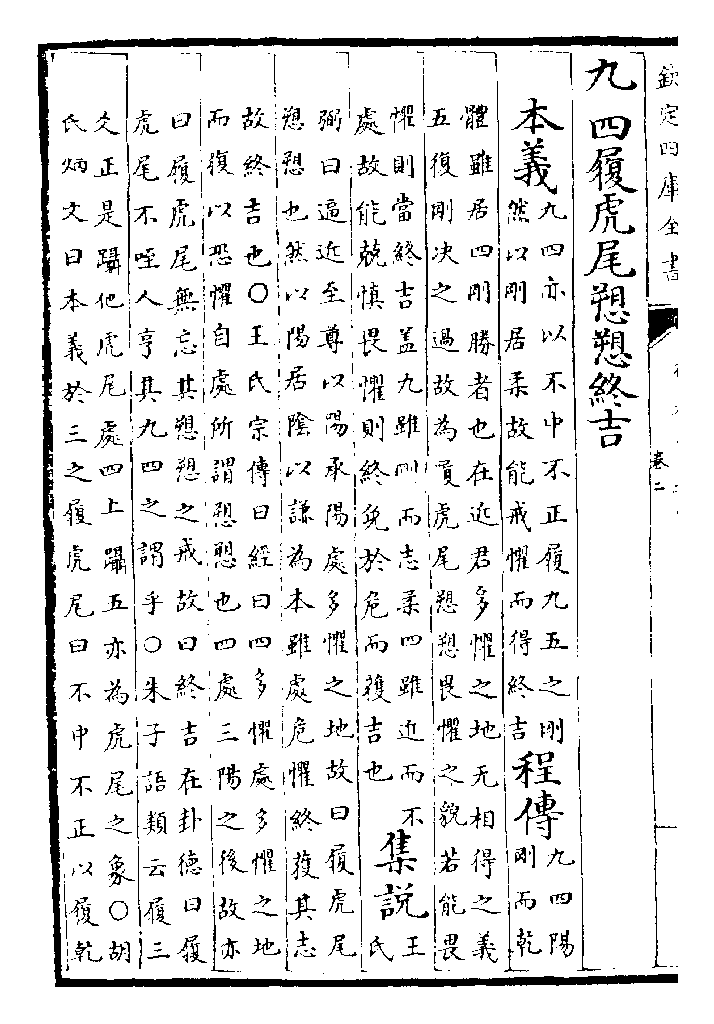 欽定四庫全書
卷二
九四履虎尾愬愬終吉
本義
九四亦以不中不正履九五之剛
然以剛居柔故能戒懼而得終吉
程傳
九四陽
剛而乾
體雖居四剛勝者也在近君多懼之地无相得之義
五復剛決之過故為履虎尾愬愬畏懼之貌若能畏
懼則當終吉蓋九雖剛而志柔四雖近而不
處故能兢慎畏懼則終免於危而獲吉也
集說
王
氏
弼曰逼近至尊以陽承陽處多懼之地故曰履虎尾
愬愬也然以陽居陰以謙為本雖處危懼終獲其志
故終吉也○王氏宗傳曰經曰四多懼處多懼之地
而復以恐懼自處所謂愬愬也四處三陽之後故亦
曰履虎尾無忘其愬愬之戒故曰終吉在卦德曰履
虎尾不咥人亨其九四之謂乎○朱子語類云履三
爻正是躡他虎尾處四上躡五亦為虎尾之象○胡
氏炳文曰本義於三之履虎尾曰不中不正以履乾